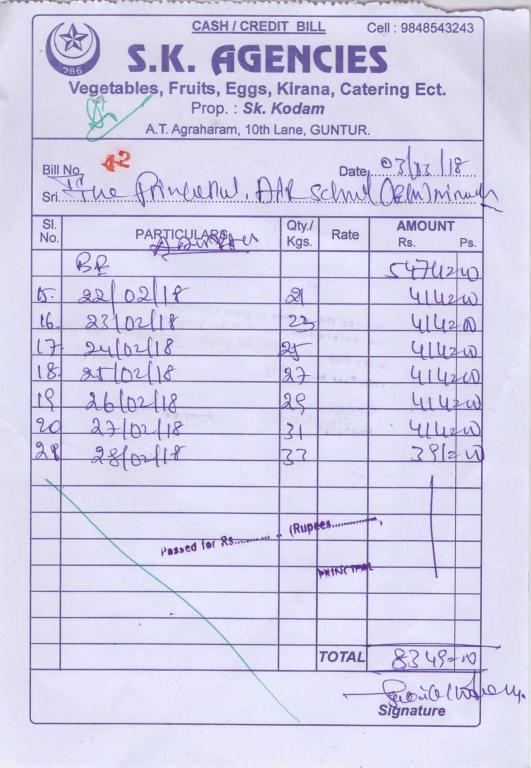 CASH / CREDIT BILL Cell : 9848543243
786
S.K. AGENCIES
Vegetables, Fruits, Eggs, Kirana, Catering Ect.
Prop. : Sk. Kodam
A.T. Agraharam, 10th Lane, GUNTUR.
Bill No. 42 Date 03/03/18
Sri. The Principal, school
Sl. No. PARTICULARS Qty./ Kgs. Rate AMOUNT Rs. Ps.
BF 5474=00
15. 22/02/18 21 414=00
16. 23/02/18 23 414=00
17. 24/02/18 25 414=00
18. 25/02/18 27 414=00
19 26/02/18 29 414=00
20 27/02/18 31 414=00
21 28/02/18 33 391=00
Passed for Rs............ (Rupees..............
PRINCIPAL
TOTAL 8349=00
Signature